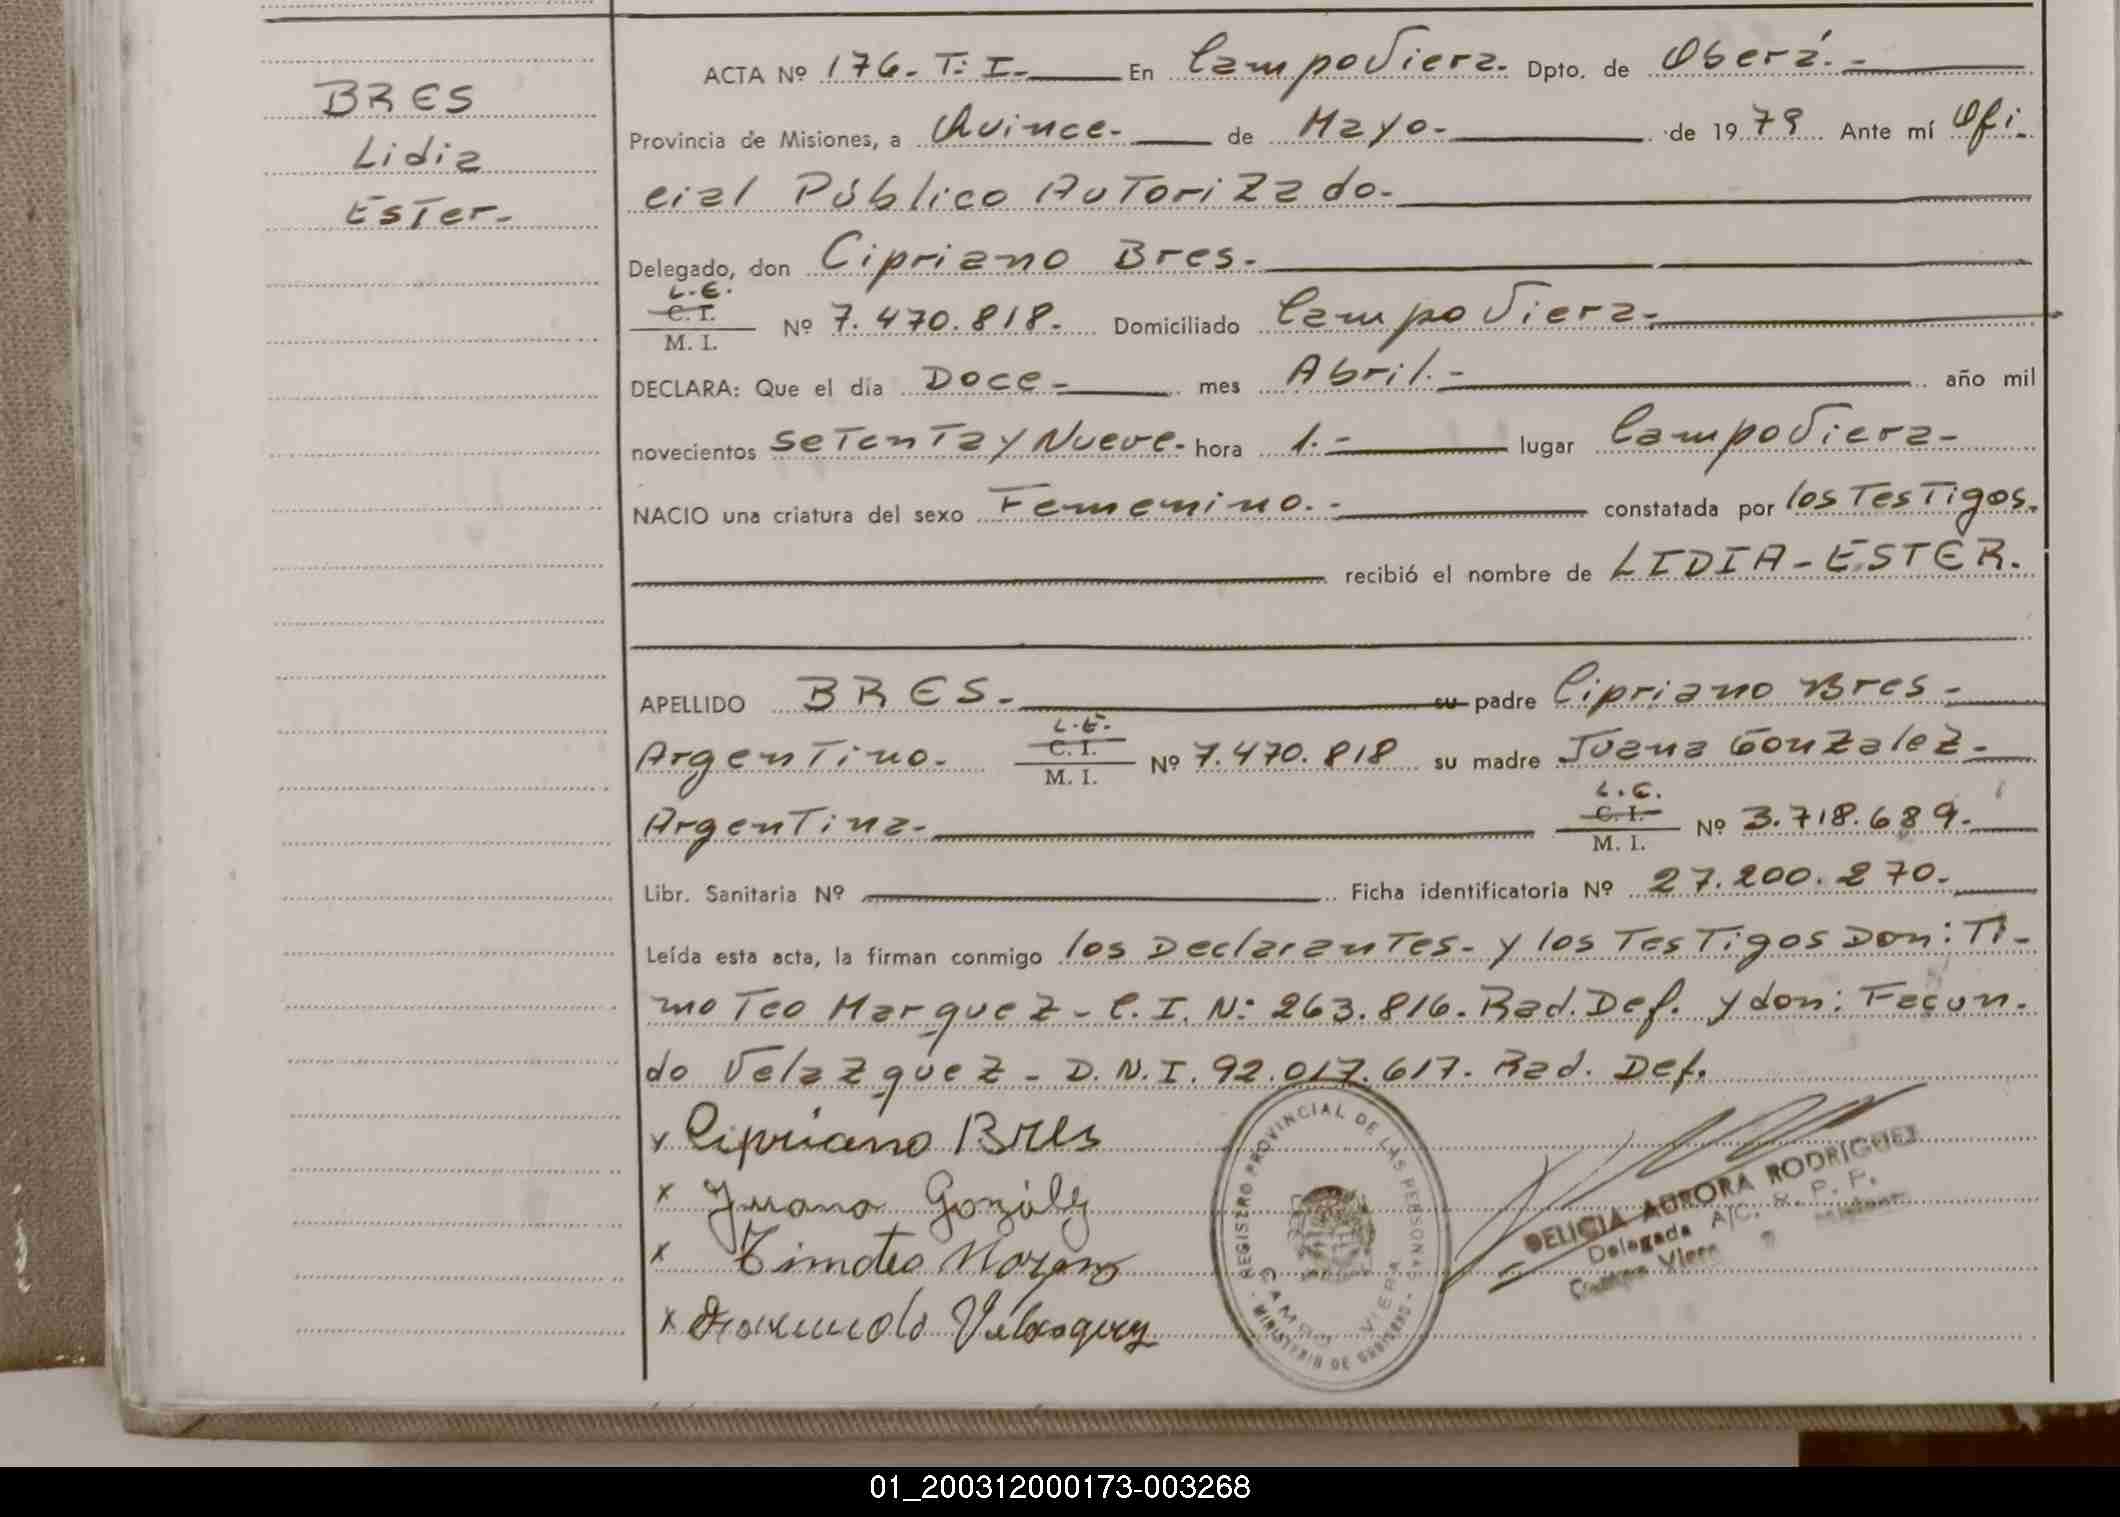 BRES
Lidia
Ester-
ACTA Nº 176. T: I. En Campo Viera. Dpto. de Oberá.-
Provincia de Misiones, a Quince- de Mayo- de 1979 Ante mí Ofi-
cial Público Autorizado-
Delegado, don Cipriano Bres-
L.E.
C.I.
M. I. Nº 7.470.818. Domiciliado Campo Viera-
DECLARA: Que el día Doce- mes Abril.- año mil
novecientos Setenta y Nueve- hora 1.- lugar Campo Viera-
NACIO una criatura del sexo Femenino.- constatada por los Testigos.
recibió el nombre de LIDIA-ESTER.
APELLIDO BRES- su padre Cipriano Bres-
Argentino- L.E. C.I. M. I. Nº 7.470.818 su madre Juana Gonzalez-
Argentina- L.C. C.I. M. I. Nº 3.718.689.-
Libr. Sanitaria Nº Ficha identificatoria Nº 27.200.270.-
Leída esta acta, la firman conmigo los Declarantes- y los Testigos Don: Ti-
moteo Marquez- C.I. N: 263.816. Rad. Def. y don: Facun-
do Velazquez- D.N.I. 92.017.617. Rad. Def.
x Cipriano Bres
x Juana Gozálz
x Timoteo
x Facundo Velasquez
REGISTRO PROVINCIAL DE LAS PERSONAS
CAMPO VIERA
- MINISTERIO DE GOBIERNO -
DELICIA AURORA RODRIGUEZ
Delegada A/C. R. P. P.
Campo Viera Misiones
01_200312000173-003268